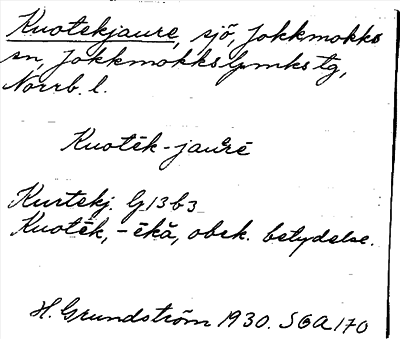 Kuotekjaure, sjö, Jokkmokks
sn, Jokkmokks lpmks tg,
Norrb. l.
Kuotēk-jau̇rē
Kurtekj. G13b3
Kuotēk, -ēkă, obek. betydelse.
H. Grundström 1930. SOA 170